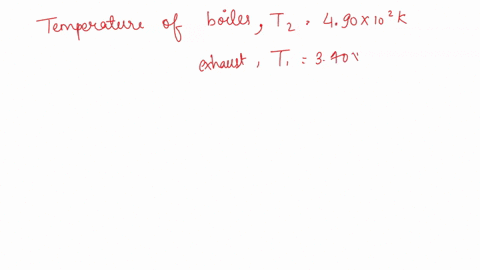 Temperature of boiler, T₂ = 4.90 × 10² K
exhaust, T₁ = 3.40×